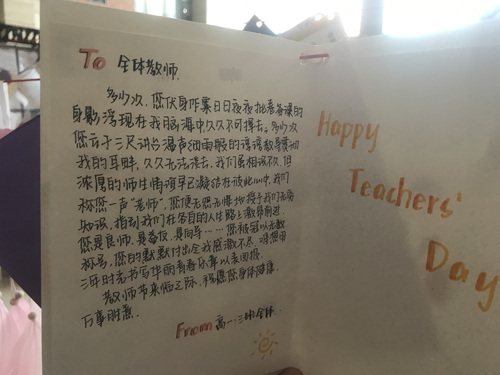 To 全体教师
多少次，您伏身阼案日日夜夜批卷备课的
身影浮现在我脑海中久久不可掸去。多少次
您立于三尺讲台瀑声细雨般的谆谆教导萦绕
我的耳畔，久久无法淡去。我们虽相识不久，但
浓厚的师生情谊早已凝结在彼此心中，我们
称您一声“老师”，您便无怨无悔地授予我们无穷
知识，指引我们在各自的人生路上激昂前进。
您是良师，是益友，是向导……您被冠以无数
称号，您的默默付出令我感激不尽，
三年时光书写华丽青春乐章以表回报。
教师节来临之际，祝愿您身体健康，
万事胜意。
From 高一三班全体
Happy
Teachers'
Day